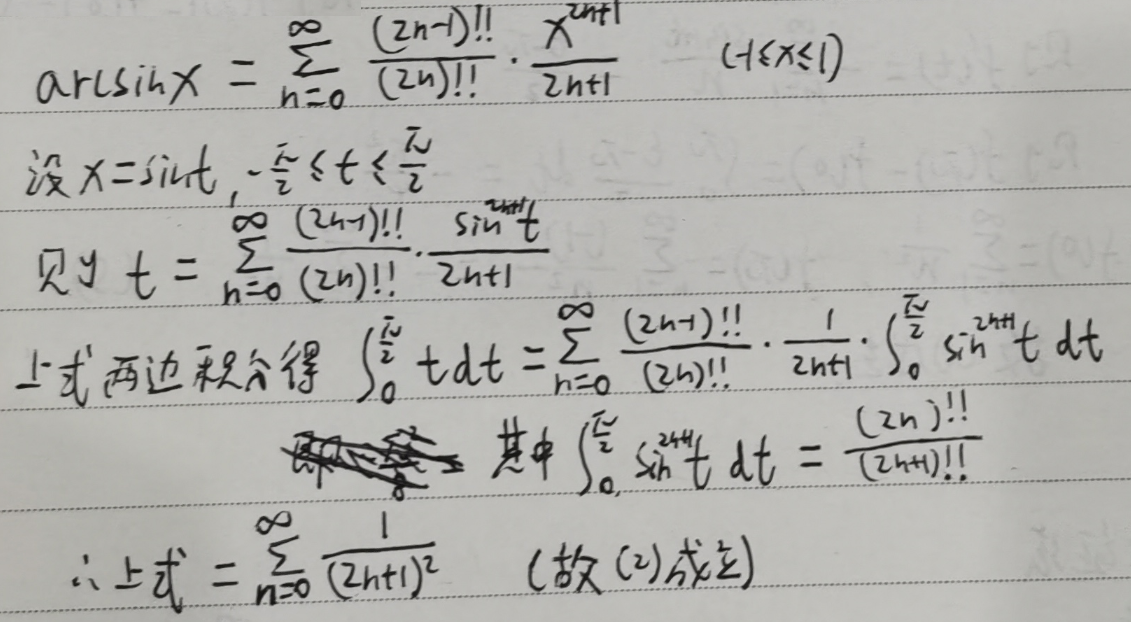 arcsinx = ∑_{n=0}^{∞} \frac{(2n-1)!!}{(2n)!!} · \frac{x^{2n+1}}{2n+1} (-1≤x≤1)
设 x=sint, -\frac{π}{2} ≤ t ≤ \frac{π}{2}
则 t = ∑_{n=0}^{∞} \frac{(2n-1)!!}{(2n)!!} · \frac{sin^{2n+1}t}{2n+1}
上式两边积分得 ∫_{0}^{\frac{π}{2}} t dt = ∑_{n=0}^{∞} \frac{(2n-1)!!}{(2n)!!} · \frac{1}{2n+1} · ∫_{0}^{\frac{π}{2}} sin^{2n+1}t dt
其中 ∫_{0}^{\frac{π}{2}} sin^{2n+1}t dt = \frac{(2n)!!}{(2n+1)!!}
∴上式 = ∑_{n=0}^{∞} \frac{1}{(2n+1)^2} (故(2)成立)